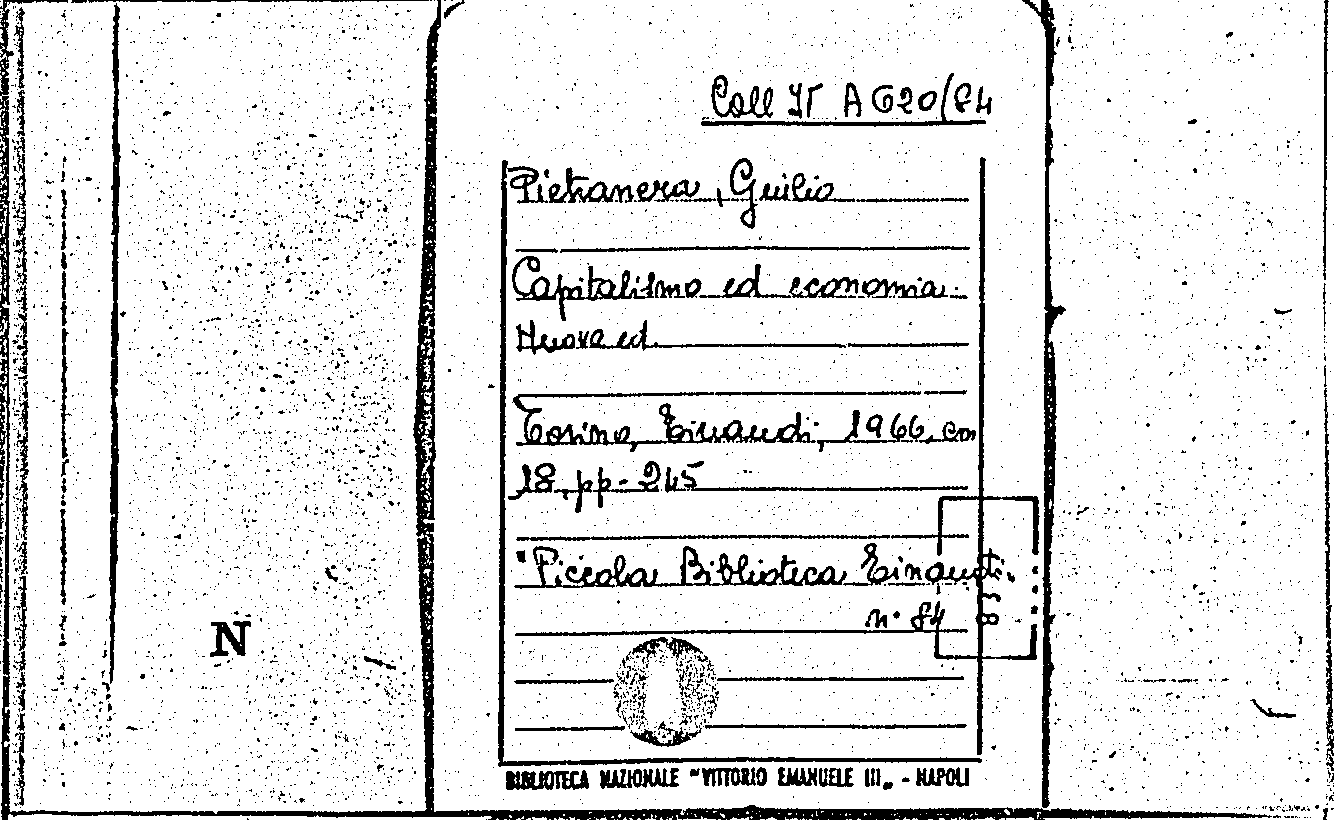 Coll IT A 620/84
Pietranera, Giulio
Capitalismo ed economia.
Nuova ed.
Torino, Einaudi, 1966, cm
18, pp. 245
"Piccola Biblioteca Einaudi"
n. 84
N
BIBLIOTECA NAZIONALE "VITTORIO EMANUELE III„ - NAPOLI